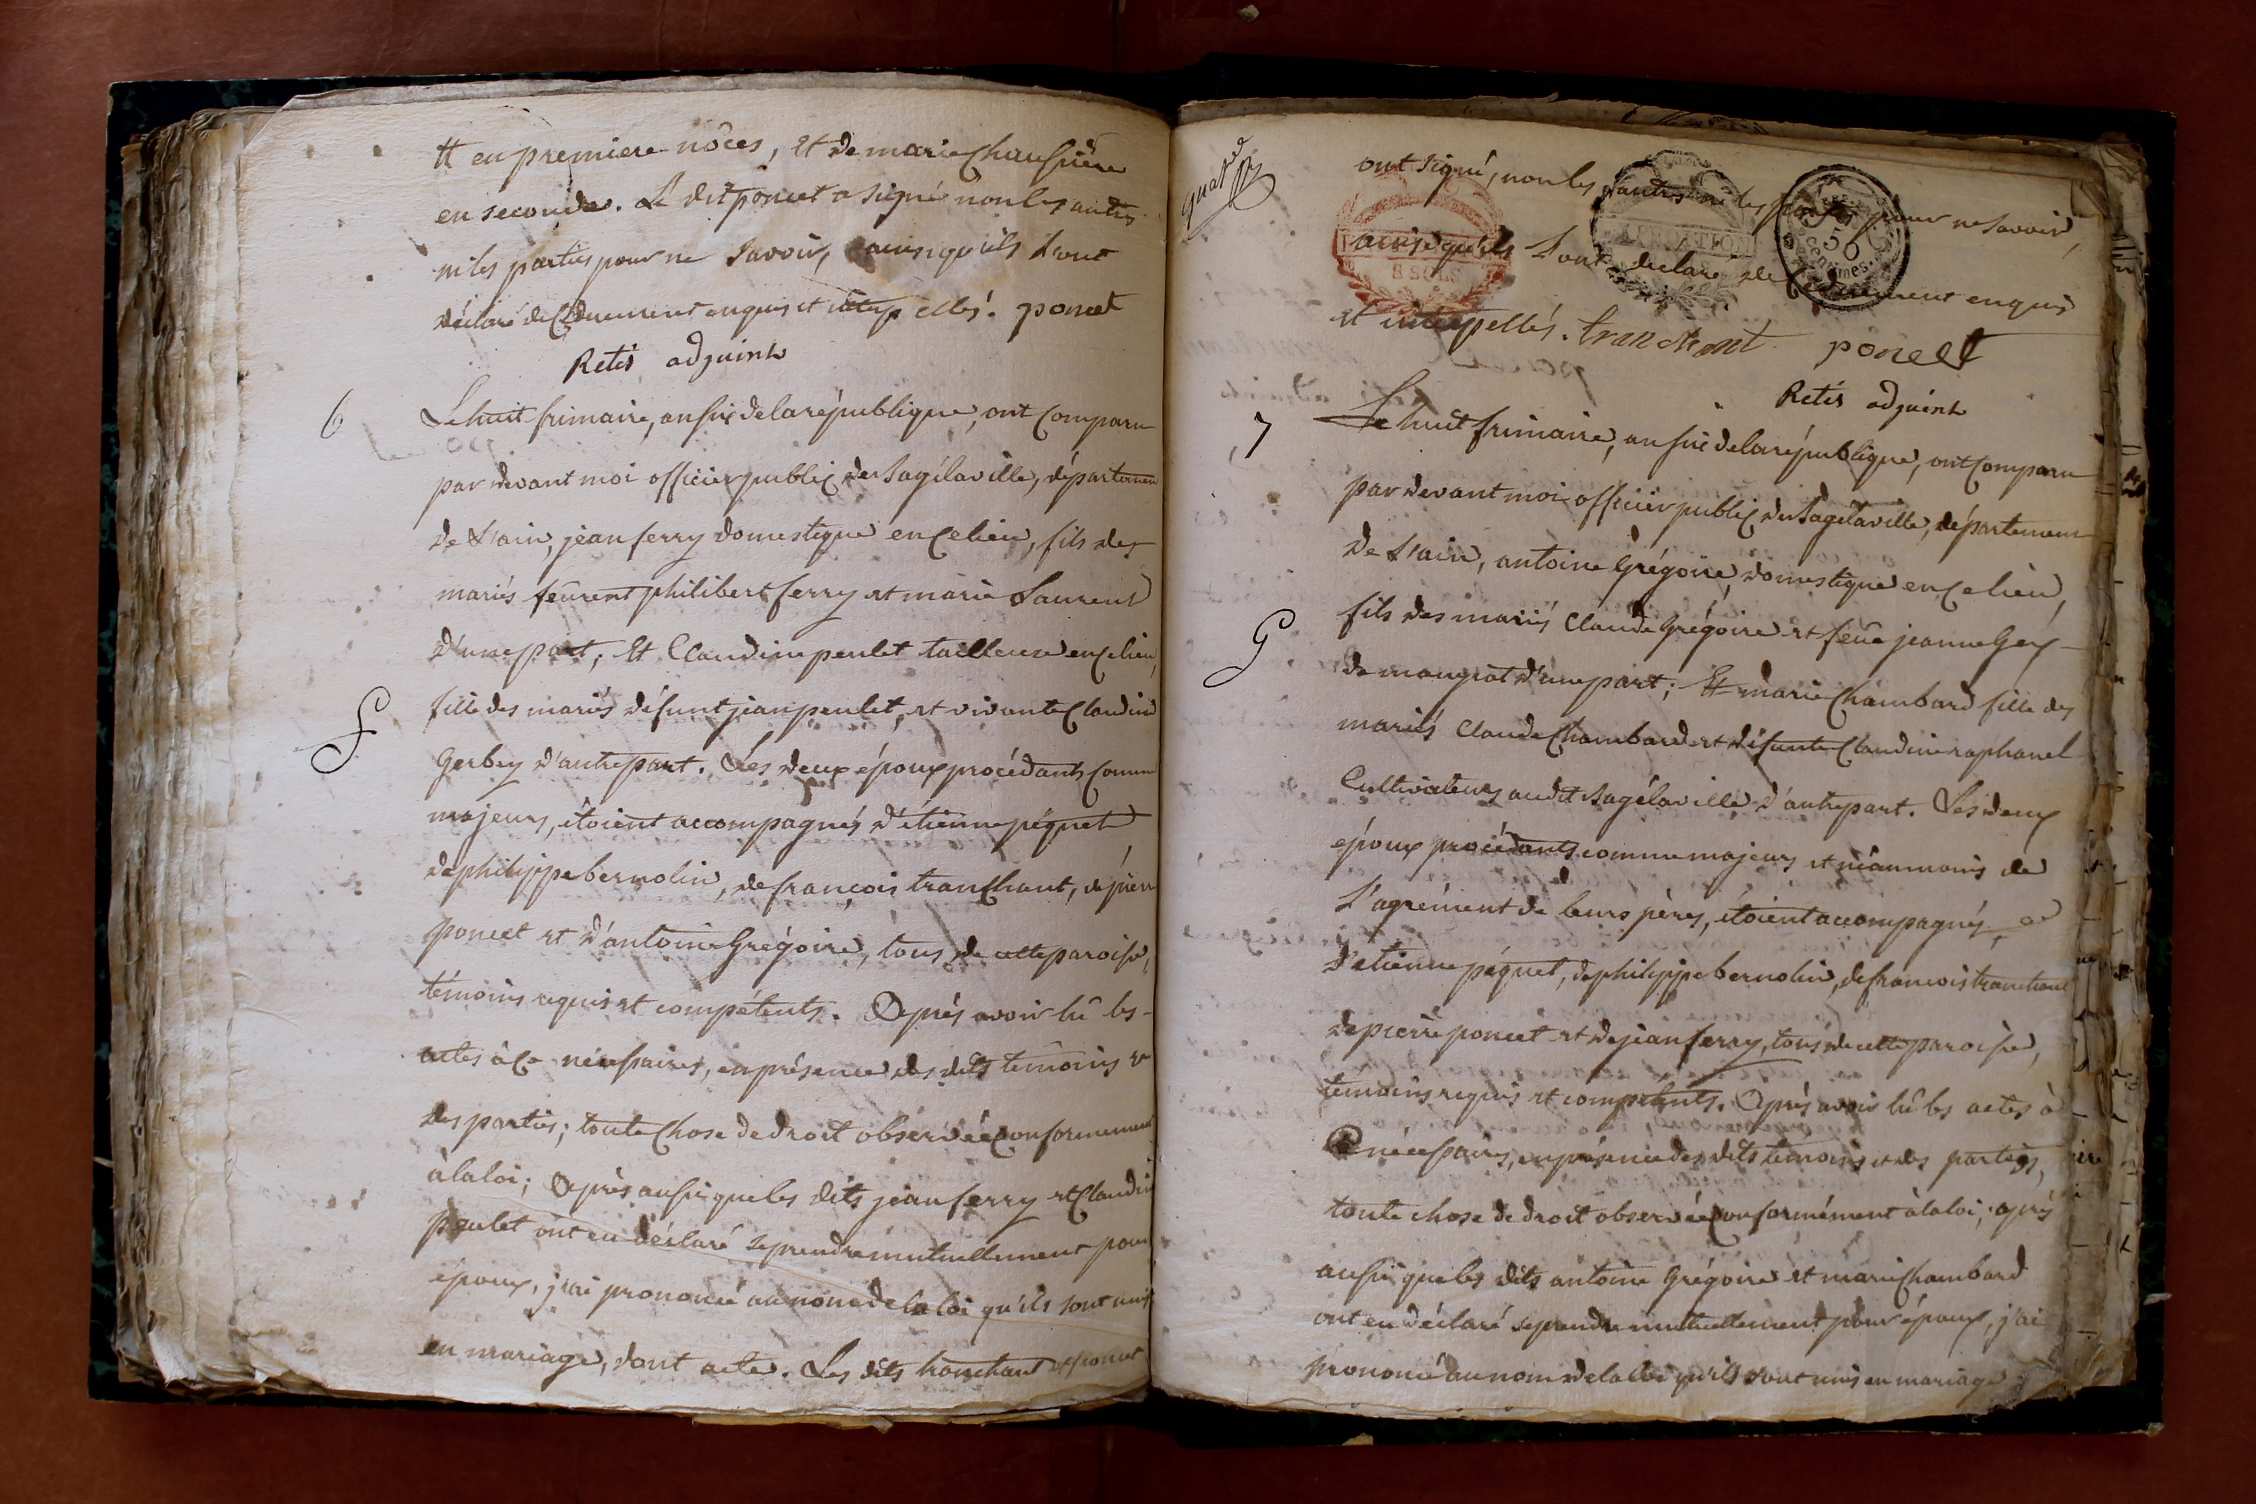 et en premiere nôces, et de marie Chaussière
en seconde. Le dit poncet a signé non les autres
ni les parties pour ne savoir, ainsi qu'ils l'ont
déclaré de ce duement enquis et interpellés. poncet
Retis adjoint
6
Le huit frimaire, an six de la république, ont comparu
par devant moi officier public de Sagélaville, département
de l'ain, jean ferry domestique en ce lieu, fils des
mariés feurent philibert ferry et marie Laurent
d'une part; Et Claudine peulet tailleuse en ce lieu,
f
fille des mariés défunt jean peulet, et vivante Claudine
Gerbey d'autre part. Les deux époux procédants comme
majeurs, étoient accompagnés d'étienne péquet
de philippe bernolin, de françois tranchant, de pierre
poncet et d'antoine Grégoire, tous de cette paroisse,
témoins requis et compétents. Après avoir lû les
actes à ce nécessaires, en présence des dits témoins et
des parties; toute chose de droit observée conformément
à la loi; Après aussi que les dits jean ferry et Claudine
peulet ont eu déclaré se prendre mutuellement pour
époux, j'ai prononcé au nom de la loi qu'ils sont unis
en mariage, dont acte. Les dits tranchant et poncet
quat
ont signé, non les autres ni les parties pour ne savoir,
ainsi qu'ils l'ont déclaré de ce duement enquis
8 SOLS
50
Centimes.
et interpellés. tranchant poncet
Retis adjoint
7
Le huit frimaire, an six de la république, ont comparu
par devant moi officier public de Sagélaville, département
de l'ain, antoine Grégoire, domestique en ce lieu,
G
fils des mariés Claude Grégoire et feûe jeanne Gey
de mongrat d'une part; Et marie Chambard fille des
mariés Claude Chambard et défunte Claudine raphanel
Cultivateurs audit Sagélaville d'autre part. Les deux
époux procédants comme majeurs et néanmoins de
l'agrément de leurs pères, étoient accompagnés
d'étienne péquet, de philippe bernolin, de francois tranchant
de pierre poncet et de jean ferry, tous de cette paroisse,
témoins requis et compétents. Après avoir lû les actes à
ce nécessaires, en présence des dits témoins et des parties,
toute chose de droit observée conformément à la loi; après
aussi que les dits antoine Grégoire et marie Chambard
ont eu déclaré se prendre mutuellement pour époux, j'ai
prononcé au nom de la loi qu'ils sont unis en mariage